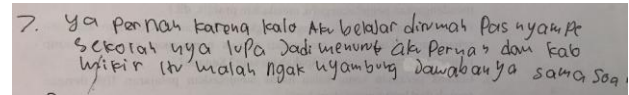 7. ya pernah karena kalo Aku belajar dirumah Pas nyampe
sekolah nya lupa Jadi menurut aku Pernah dan kalo
mikir itu malah ngak nyambung Jawabanya sama soa